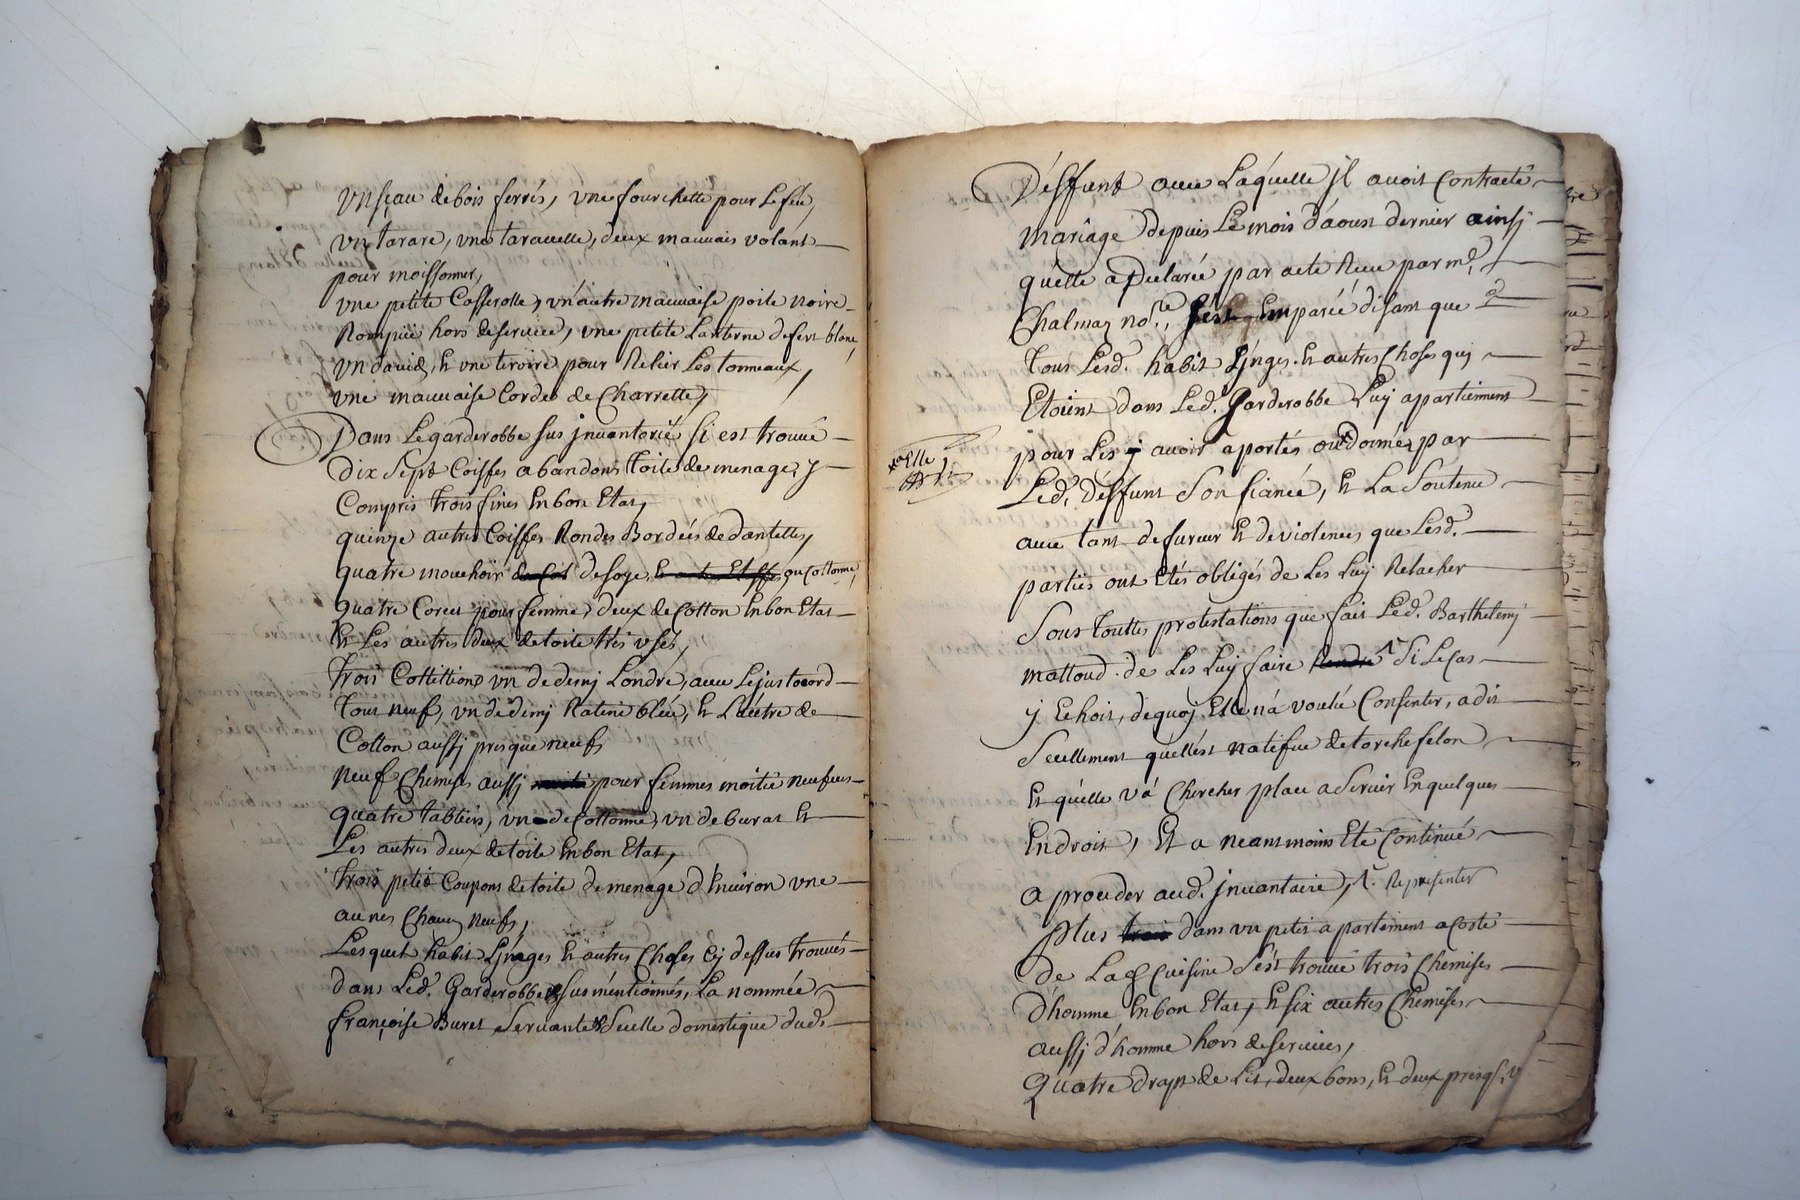 Un seau de bois ferrés, une fourchette pour Le feu,
un tarare, une taravelle, deux mauvais volant
pour moissonner,
une petite Casserolle, un autre mauvaise poile noire
Rompüe hors de service, une petite Lanterne de fert blanc,
un david, et une tiroire pour Relier Les tonneaux,
une mauvaise Corde de Charrette,
Dans Le garderobbe sus jnventorié si est trouvé
dix Sept Coiffes a bandons toile de menage, y
Compris trois fines En bon Etat,
quinze autres Coiffes Rondes Bordéés de dantelles,
quatre mouchoir de soye, ou Cottonne,
quatre Corcet pour femme, deux de Cotton En bon Etat
Et Les autres deux de toile très usés,
trois Cottillions un de demj Londré, avec Le justocord
tout neuf, un de demj Ratine bleüe, Et L'autre de
Cotton aussj presque neuf,
neuf Chemises aussj pour femmes moitié neufves
quatre tabliers, un de Cottonne, un de burat Et
Les autres deux de toile En bon Etat,
trois petits Coupons de toile de menage d'Environ une
aunes Chacun neufs,
Lesquels habit Ljnges Et autres Choses Cy dessus trouvés
dans Led. Garderobbe sus mentionnés, La nommée
françoise Buret Servante Seulle domestique dud.
Déffunt avec Laquelle jl avoit Contracté
mariage depuis Le mois d'aoust dernier ainsj
quelle a Declarée par acte Recu par me.
Chalmaz nore., s'est Emparée disant que
tous Lesd. habit Ljnges Et autres Choses quj
Etoient dans Led. Garderobbe Luy apartiennent
pour Les y avoir aportés ou donnés par
x Elle
Led. déffunt Son fiancé, Et La Soutenu
avec tant de fureur Et de violences que Lesd.
parties ont Etés obligés de Les Luy Relacher
Sous touttes protestations que fait Led. Barthelemj
mattoud de Les Luy faire Si Le Cas
y Echoit, de quoy Elle n'a voulu Consentir, a dit
Seullement quellest natifve de torchefelon
Et quelle và Chercher place a Servir En quelques
Endroit, Et a neantmoins Eté Continué
a proceder aud. jnvantaire, Representer
Plus dans un petit apartement a Costé
de La Cuisine S'est trouvé trois Chemises
d'homme En bon Etat, Et six autres Chemises
aussj d'homme hors de services,
Quatre drapt de Lit, deux bons, Et deux presq.